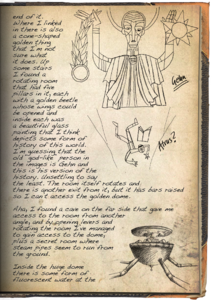 end of it.
Where I linked
in there is also
a cone-shaped
golden thing
that I'm not
sure what
it does. Up
some stairs
I found a
rotating room
that had five
pillars in it, each
with a golden beetle
whose wings could
be opened and
inside each was
a beautiful glass
painting that I think
depicts some form of
history of this world.
I'm guessing that the
old "god-like" person in
the images is Gehn and
this is his version of the
history. Unsettling to say
the least. The room itself rotates and
there is another exit from it, but it has bars raised
so I can't access the golden dome.
Gehn
Atrus?
Also, I found a cave on the far side that gave me
access to the room from another
angle, and by opening levers and
rotating the room I've managed
to gain access to the dome,
plus a secret room where
steam pipes seem to run from
the ground.
Inside the huge dome
there is some form of
fluorescent water at the